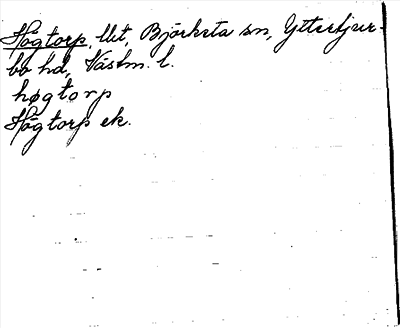 Högtorp, lht, Björksta sn, Yttertjur-
bo hd, Västm. l.
høgtorp
Högtorp ek.